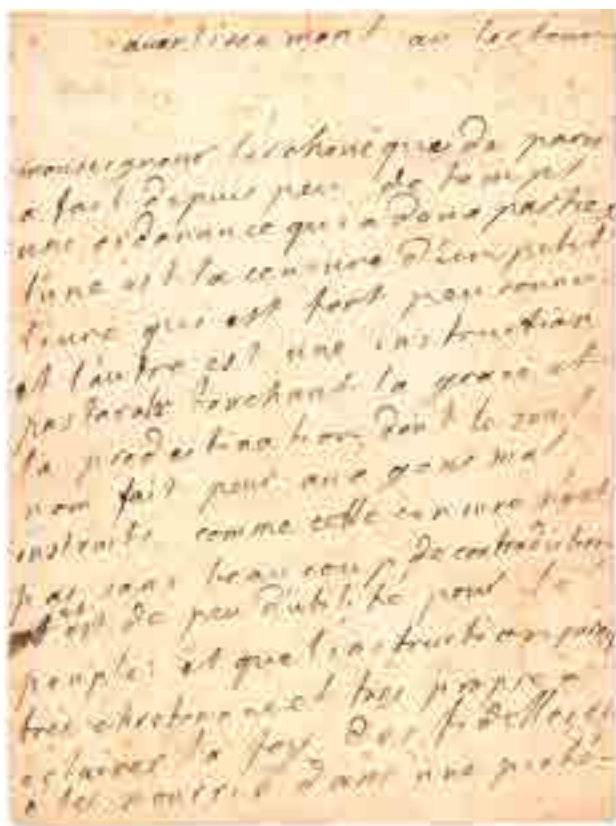 auertissement au lecteur
monseigneur l'archeueque de paris
a fait depuis peu de temps
une ordonance qui a deux parties
l'une est la censure d'un petit
liure qui est fort peu connu
et l'autre est une instruction
pastorale touchant la grace et
la predestination dont le seul
nom fait peur aux gens mal
instruits comme cette censure n'est
pas sans beaucoup de contradiction
et est de peu d'utilité pour le
peuple et que l'instruction
tres chretienne et tres propre a
eclairer la foy des fidelles et
a les nourrir dans une pieté